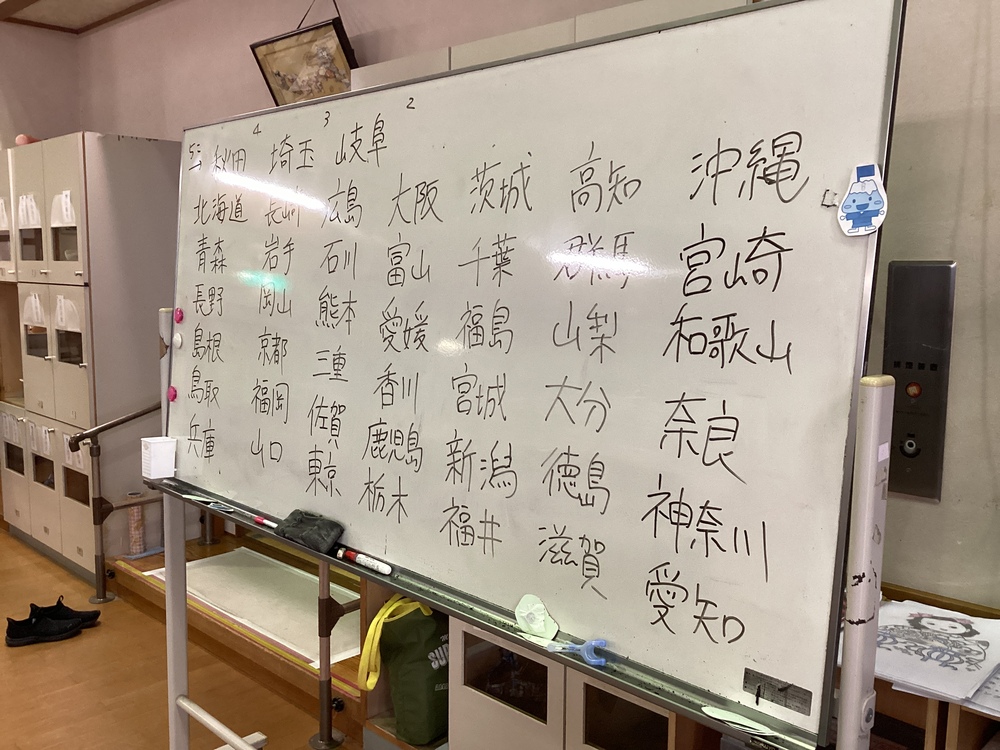 沖縄
宮崎
和歌山
奈良
神奈川
愛知
高知
群馬
山梨
大分
徳島
滋賀
茨城
千葉
福島
宮城
新潟
福井
2
大阪
富山
愛媛
香川
鹿児島
栃木
3
岐阜
広島
石川
熊本
三重
佐賀
東京
4
埼玉
岩手
岡山
京都
福岡
山口
秋田
北海道
青森
長野
島根
鳥取
兵庫